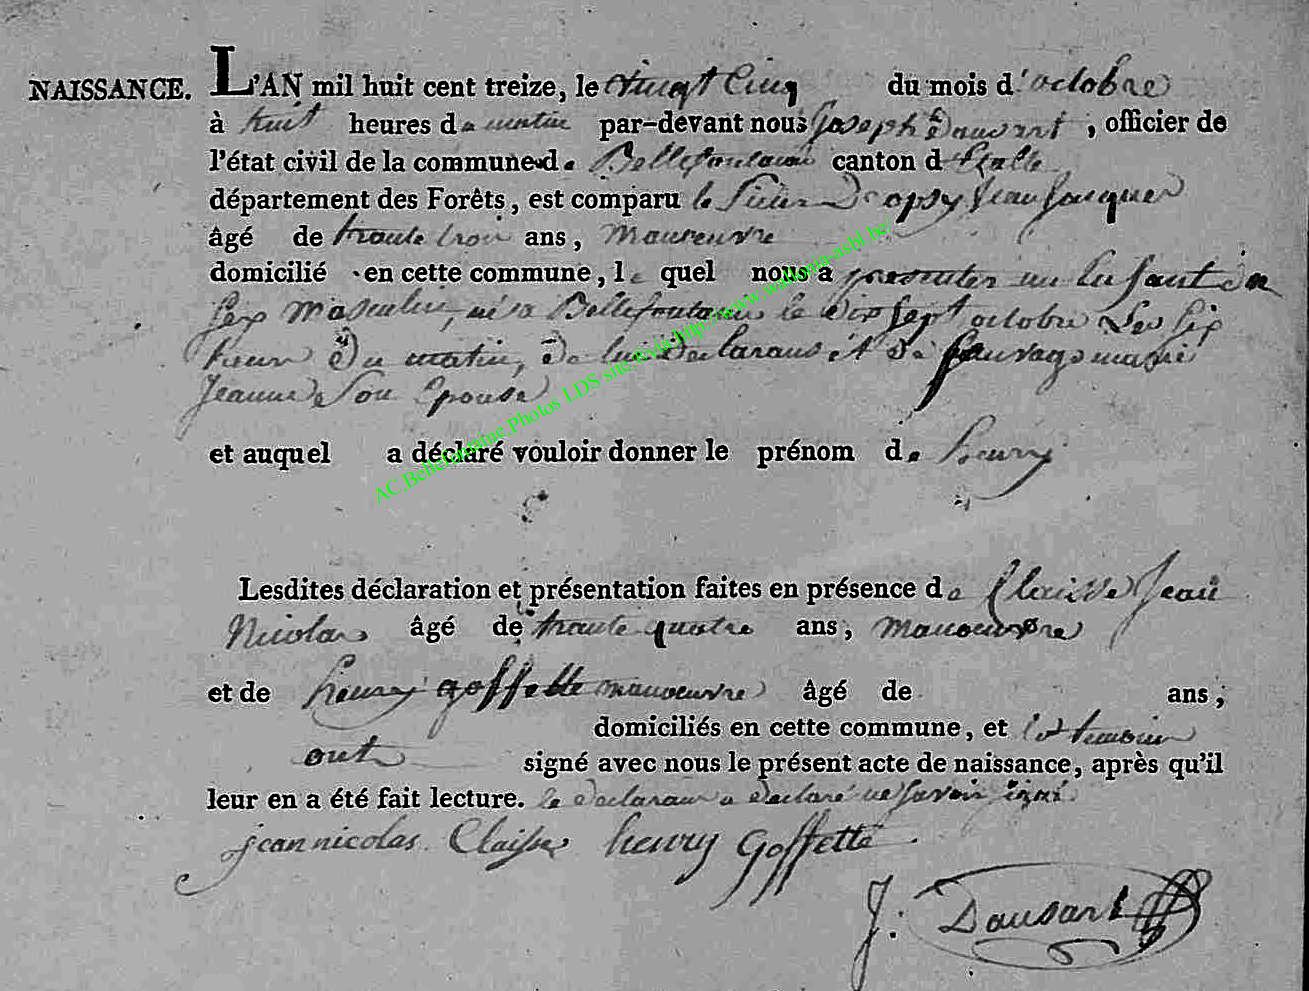 NAISSANCE. L'AN mil huit cent treize, le vingt Cinq du mois d'octobre
à huit heures du matin par-devant nous Joseph Dausart, officier de
l'état civil de la commune de Bellefontaine canton d'Etalle
département des Forêts, est comparu le Sieur Jean Jacques
âgé de trante trois ans, Maneuvre
domicilié en cette commune, le quel nous a presenter un Enfant du
sex Masculin, né a Bellefontaine le dix sept octobre Les six
heur Du matin, De lui Declarant et De Sauvage marie
Jeanne Son Epouse
et auquel a déclaré vouloir donner le prénom de henry
Lesdites déclaration et présentation faites en présence de Claisse Jean
Nicolas âgé de trante quatre ans, manouvre
et de henry goffette manoeuvre âgé de ans,
domiciliés en cette commune, et les temoin
ont signé avec nous le présent acte de naissance, après qu'il
leur en a été fait lecture. le Declarant a Declaré ne savoir signé.
jean nicolas Claisse henry goffette
J. Dausart
AC.Bellefontaine.Photos LDS site Evin.http://www.wallonia-asbl.be/